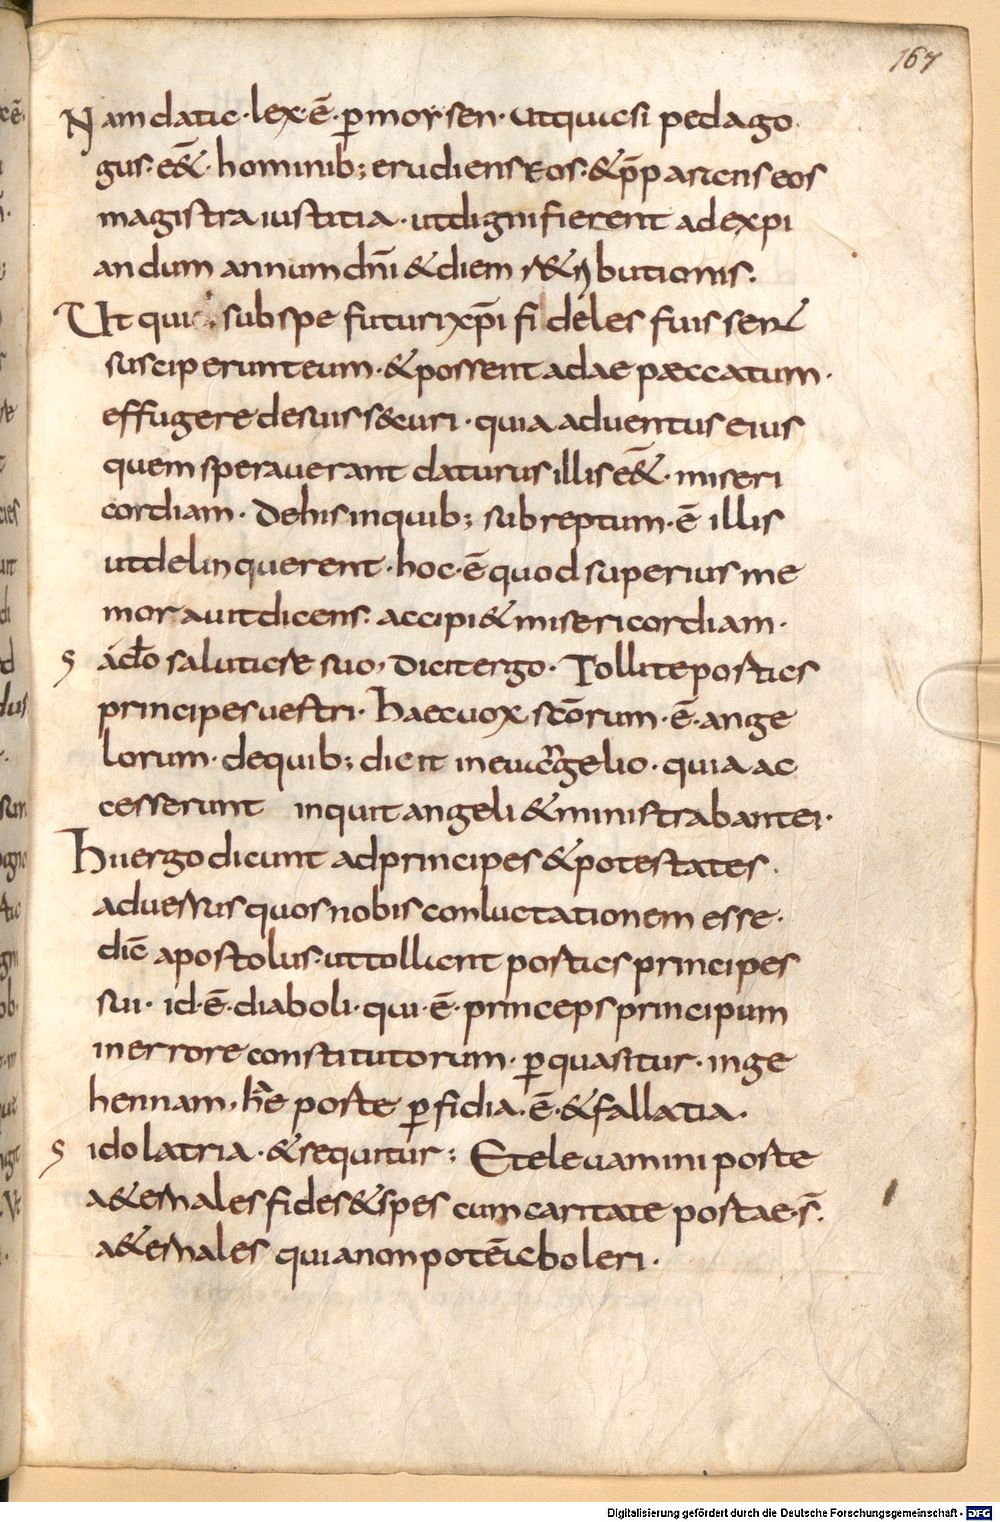 167
Nam data · lex · ē · ꝑ moysen · ut quasi pedago
gus · eēt · hominib; erudiens eos · & p̄parans eos
magistra iustitia · ut digni fierent ad expi
andum annum dn̄i & diem r&ributionis ·
Ut qui sub spe futuri xp̄i fideles fuissent
susciperunt eum · & possent adae pæccatum ·
effugere de suis securi · quia aduentus eius
quem sperauerant daturus illis eēt · miseri
cordiam · De his in quib; subreptum · ē illis
ut delinquerent · hoc · ē quod superius me
morauit dicens · accipi& misericordiam ·
ś a dō salutare suo, Dicit ergo · Tollite portas
principes uestri · Haec uox sc̄orum · ē · ange
lorum · de quib; dicit in euangelio · quia ac
cesserunt inquit angeli & ministrabant ei ·
Hii ergo dicunt ad principes & potestates ·
aduersus quos nobis conluctationem esse ·
dic̄ apostolus · ut tollant portas principes
sui · id · ē · diaboli · qui · ē · princeps principum
in errore constitutorum · ꝑ quas itur · in ge
hennam, porte ꝑfidia · ē · & fallatia ·
idolatria · & sequitur ; Et eleuamini porte
a&ernales fides & spes cum caritate portae · s̄ ·
a&ernales quia non potē aboleri ·
Digitalisierung gefördert durch die Deutsche Forschungsgemeinschaft - DFG